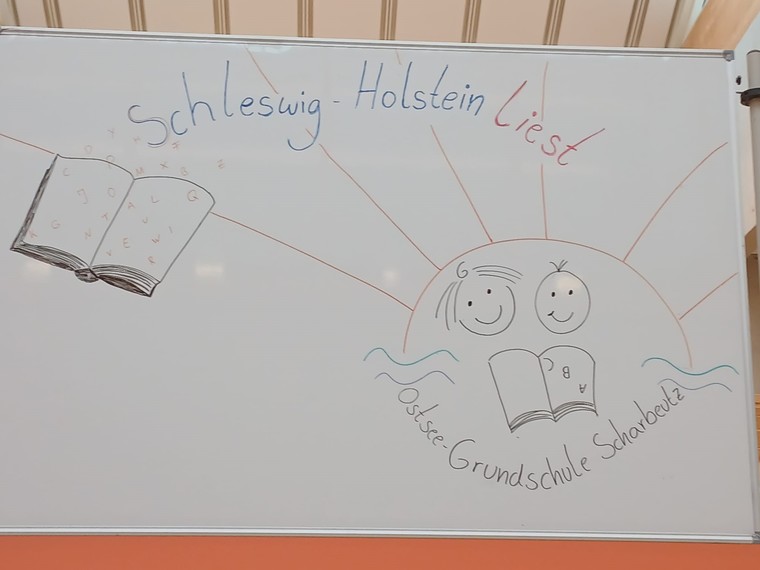 Schleswig-Holstein Liest
A B C
Ostsee-Grundschule Scharbeutz